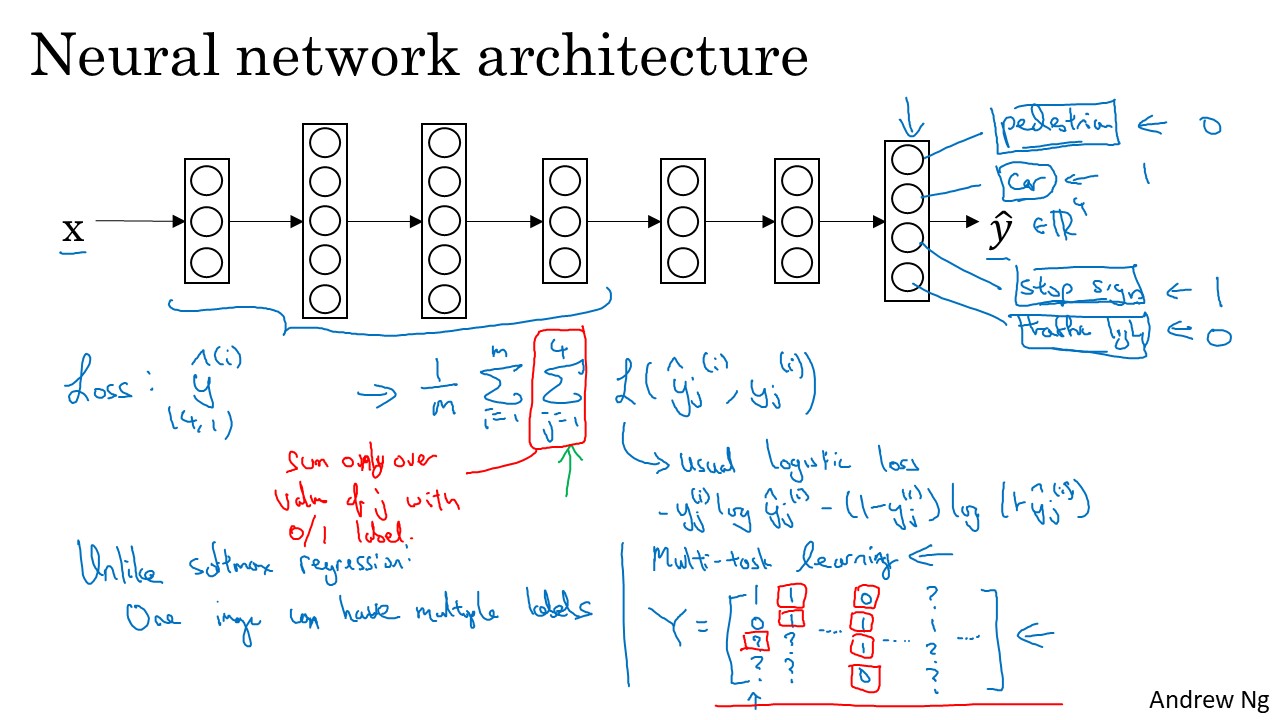 Neural network architecture
x
ŷ ∈ ℝ⁴
pedestrian ← 0
car ← 1
stop sign ← 1
traffic light ← 0
Loss: ŷ^(i) (4,1) → 1/m Σ_{i=1}^{m} Σ_{j=1}^{4} L(ŷ_j^(i), y_j^(i))
Sum only over
value of j with
0/1 label.
→ usual logistic loss
- y_j^(i) log ŷ_j^(i) - (1-y_j^(i)) log (1-ŷ_j^(i))
Unlike softmax regression:
One image can have multiple labels
Multi-task learning ←
Y = [ 1 1 0 ?
0 1 .... 1 1
? ? 1 .... ? .... ] ←
? ? 0 ?
Andrew Ng